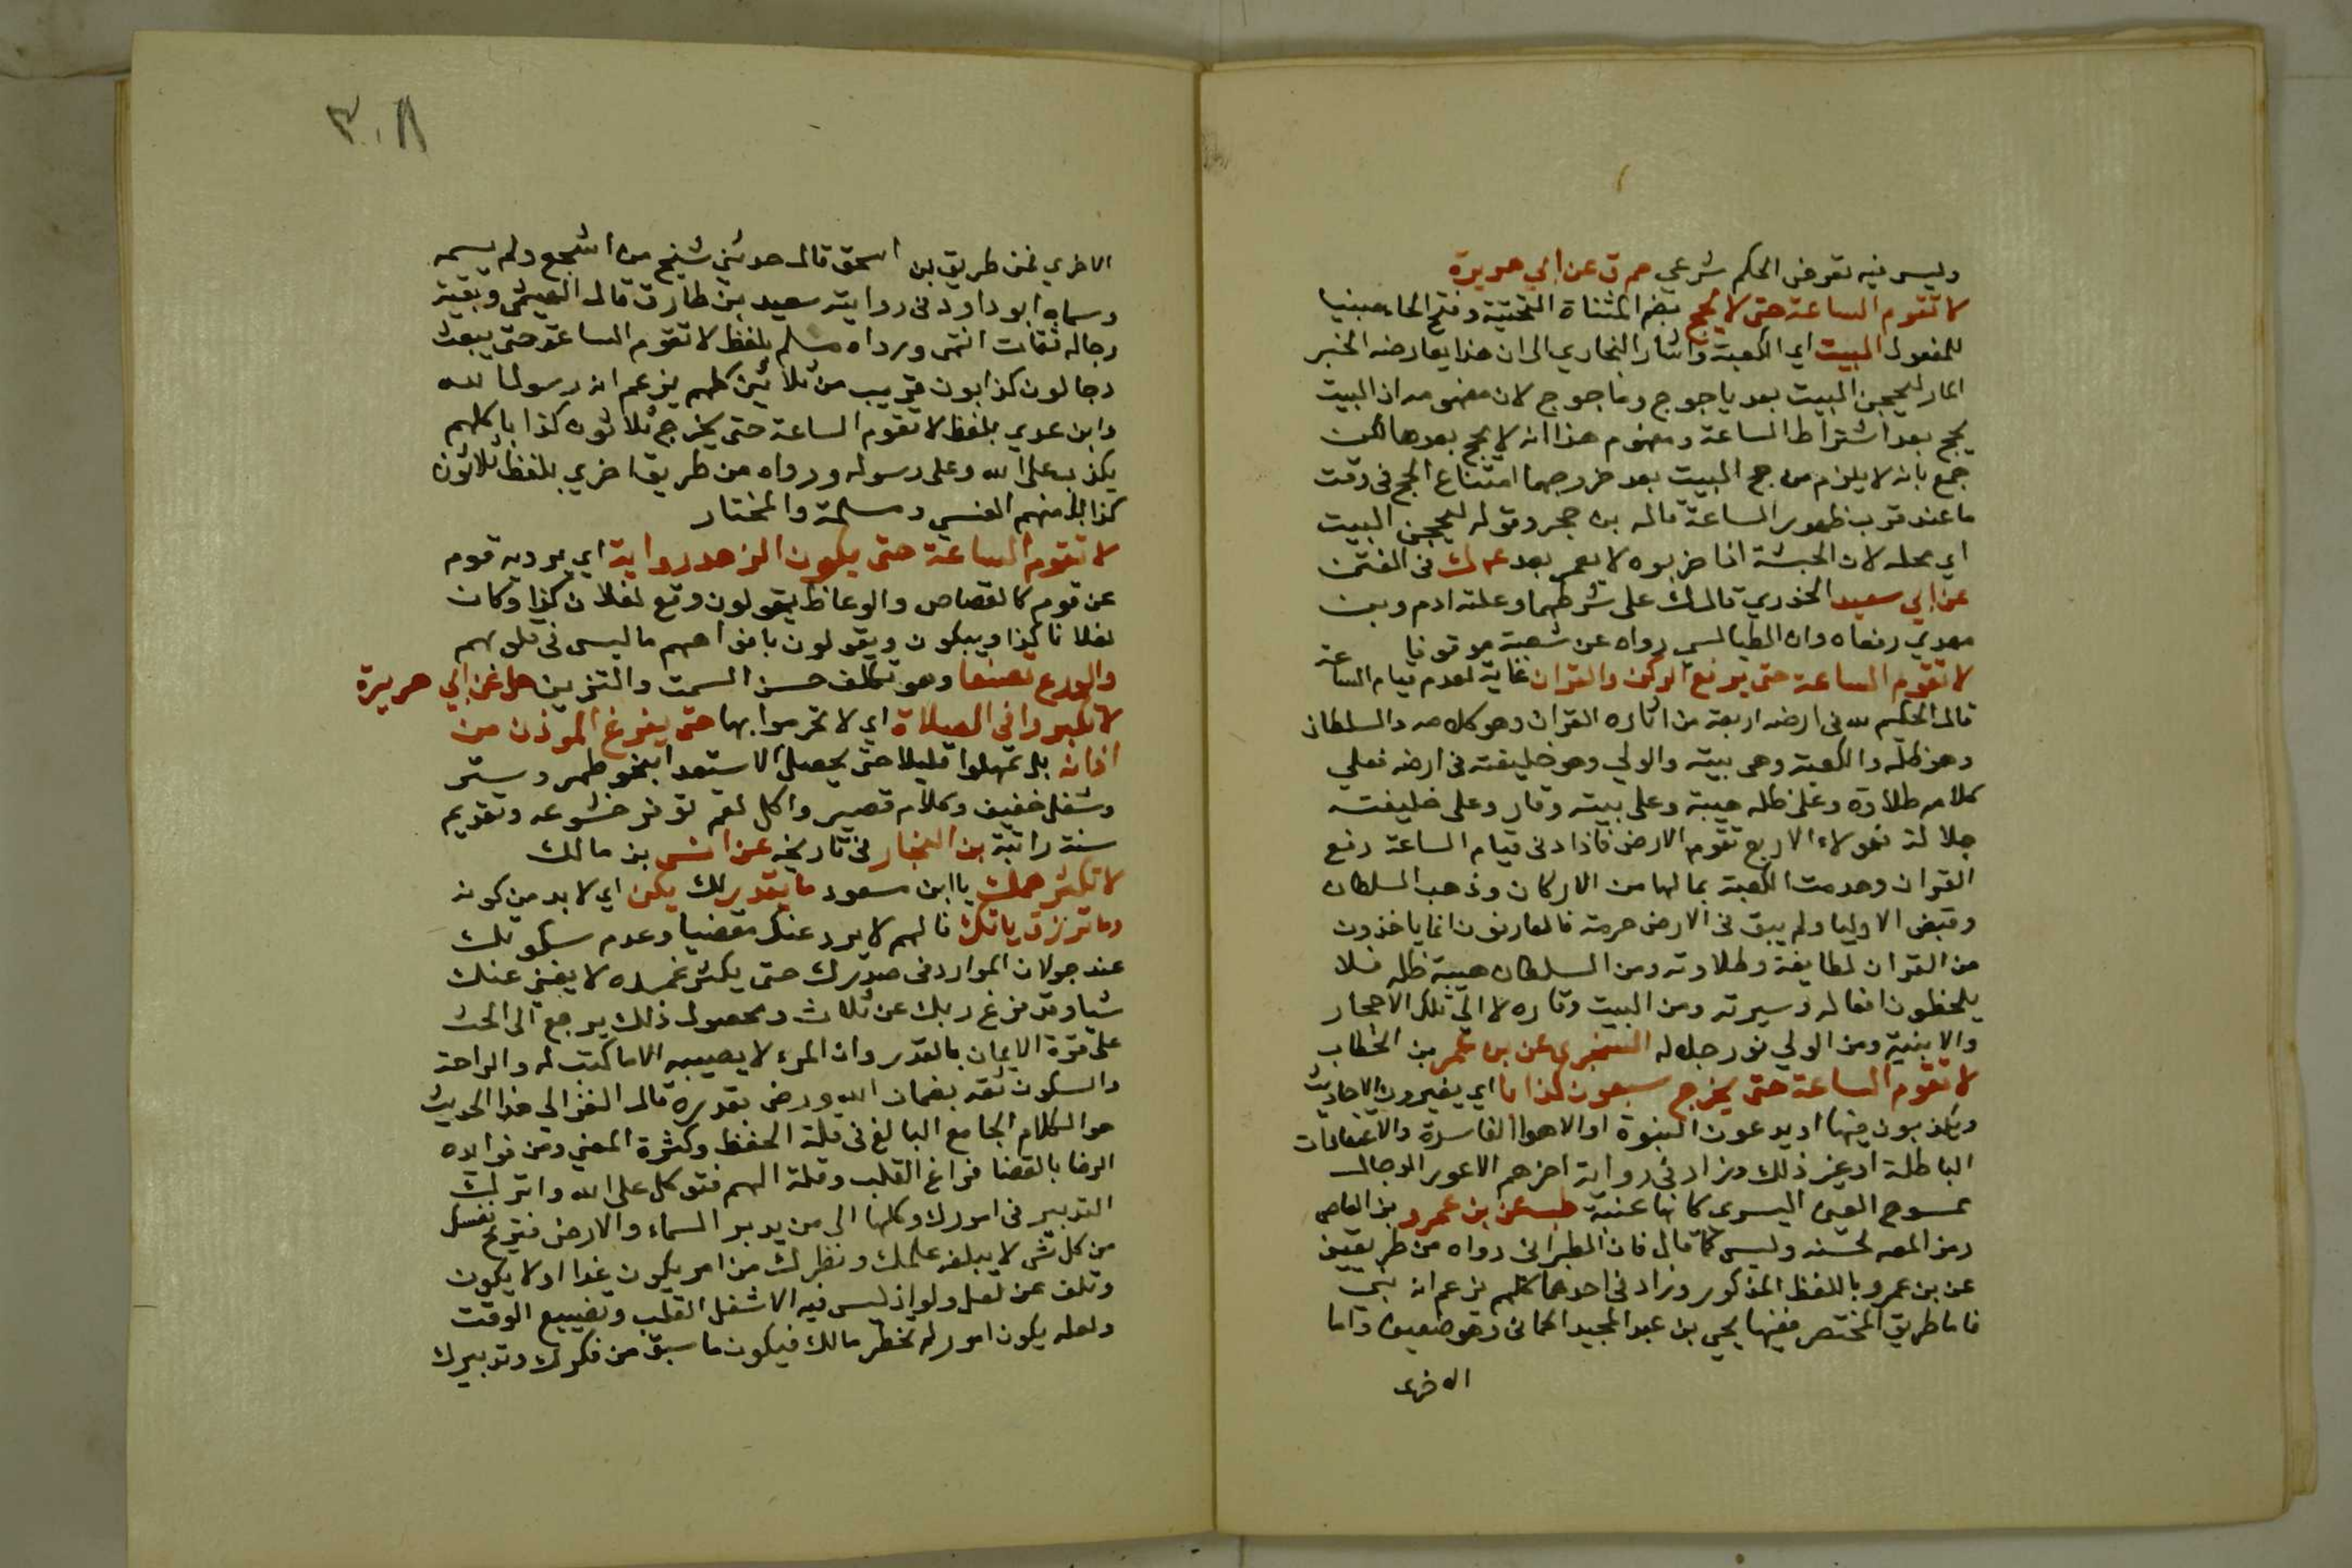 وليس فيه تعرض الحكم شرعي حم ق عن ابي هريرة
لا تقوم الساعة حتى لا يحج بضم المثناة التحتية وفتح الحاء مبنيا
للمفعول البيت اي الكعبة واشار البخاري الى ان هذا يعارضه الخبر
المار ليحجن البيت بعد ياجوج وماجوج لان مفهومه ان البيت
يحج بعد اشتراط الساعة ومفهوم هذا انه لا يحج بعدها لكن
جمع بانه لا يلزم من حج البيت بعد خروجهما امتناع الحج في وقت
ما عند قرب ظهور الساعة قاله بن حجر وقوله ليحجن البيت
اي محله لان الحبشة اذا خربوه لا يعمر بعد ع ك في الفتن
عن ابي سعيد الخدري قال ك على شرطهما وعلته ادم وبن
مهدي رفعاه وان الطيالسي رواه عن شعبة موقوفا
لا تقوم الساعة حتى يرفع الركن والقران غاية لعدم قيام الساعة
قال الحكيم لله في ارضه اربعة من اثاره القران وهو كلامه والسلطان
وهو ظله والكعبة وهى بيته والولي وهو خليفته في ارضه فعلي
كلامه طلاوة وعلى ظله هيبة وعلى بيته وقار وعلى خليفته
جلالة فهولاء الاربع تقوم الارض فاذا دنى قيام الساعة رفع
القران وهدمت الكعبة بما لها من الاركان وذهب السلطان
وقبض الاوليا ولم يبق في الارض حرمة فالعارفون انما ياخذون
من القران لطايفة وطلاوته ومن السلطان هيبة ظله فلا
يلحظون افعاله وسيرته ومن البيت وقاره لا الى تلك الاحجار
والابنية ومن الولي نور جلاله السنجرى عن بن عمر بن الخطاب
لا تقوم الساعة حتى يخرج سبعون كذابا اي يغيرون الاحاديث
ويكذبون فيها او يدعون النبوة او الاهوا الفاسدة والاعتقادات
الباطلة او غير ذلك وزاد في رواية اخرهم الاعور الدجال
ممسوح العين اليسرى كانها عنبة طب عن بن عمرو بن العاص
رمز المص لحسنه وليس كما قال فان الطبراني رواه من طريقين
عن بن عمرو باللفظ المذكور وزاد في احدهما كلهم يزعم انه نبي
فاما طريق المختصر ففيها يحيي بن عبد المجيد الحماني وهو ضعيف واما
الاخرى
٣٠٨
الاخري فمن طريق بن اسحق قال حدثني شيخ من اشجع ولم يسمه
وسماه ابو داود في رواية سعيد بن طارق قال الهيثمي وبقية
رجاله ثقات انتهى ورواه مسلم بلفظ لا تقوم الساعة حتى يبعث
دجالون كذابون قريب من ثلاثين كلهم يزعم انه رسول الله
وابن عدي بلفظ لا تقوم الساعة حتى يخرج ثلاثون كذابا كلهم
يكذب على الله وعلى رسوله ورواه من طريق اخري بلفظ ثلاثون
كذابا منهم العنسي ومسلمة والمختار
لا تقوم الساعة حتى يكون الزهد رواية اي يرويه قوم
عن قوم كالقصاص والوعاظ يقولون وقع لفلان كذا وكان
لفلانا كذا ويبكون ويقولون بافواههم ما ليس في قلوبهم
والورع تصنعا وهو تكلف حسن السمت والتزين حل عن ابي هريرة
لا تكبروا في الصلاة اي لا تحرموا بها حتى يفرغ الموذن من
اذانه بل تمهلوا قليلا حتى يحصل الاستعدا بنحو طهر وستر
وشغل خفيف وكلام قصير واكل لقم توفر خشوعه وتقديم
سنة راتبة بن النجار في تاريخه عن انس بن مالك
لا تكثر همك يا ابن مسعود ما يقدر لك يكن اي لا بد من كونه
وما ترزق ياتك فالهم لا يرد عنك مقضيا وعدم سكونك
عند جولان الموارد في صدرك حتى يكثر غمك لا يغني عنك
شيا وقد فرغ ربك عن ثلاث ومحصول ذلك يرجع الى الحث
على قوة الايمان بالقدر وان المرء لا يصيبه الا ما كتب له والراحة
والسكون ثقة بضمان الله ورضى بقدره قال الغزالي هذا الحديث
هو الكلام الجامع البالغ في قلة الحفظ وكثرة المعني ومن فوايده
الرضا بالقضا فراغ القلب وقلة الهم فتوكل على الله واترك
التدبير في امورك وكلها الى من يدبر السماء والارض فتريح نفسك
من كل شى لا يبلغه علمك ونظرك من امر يكون غدا او لا يكون
وتلف عن لعل ولو اذ ليس فيه الا شغل القلب وتضييع الوقت
ولعله يكون امور لم تخطر مالك فيكون ما سبق من فكرك وتدبيرك